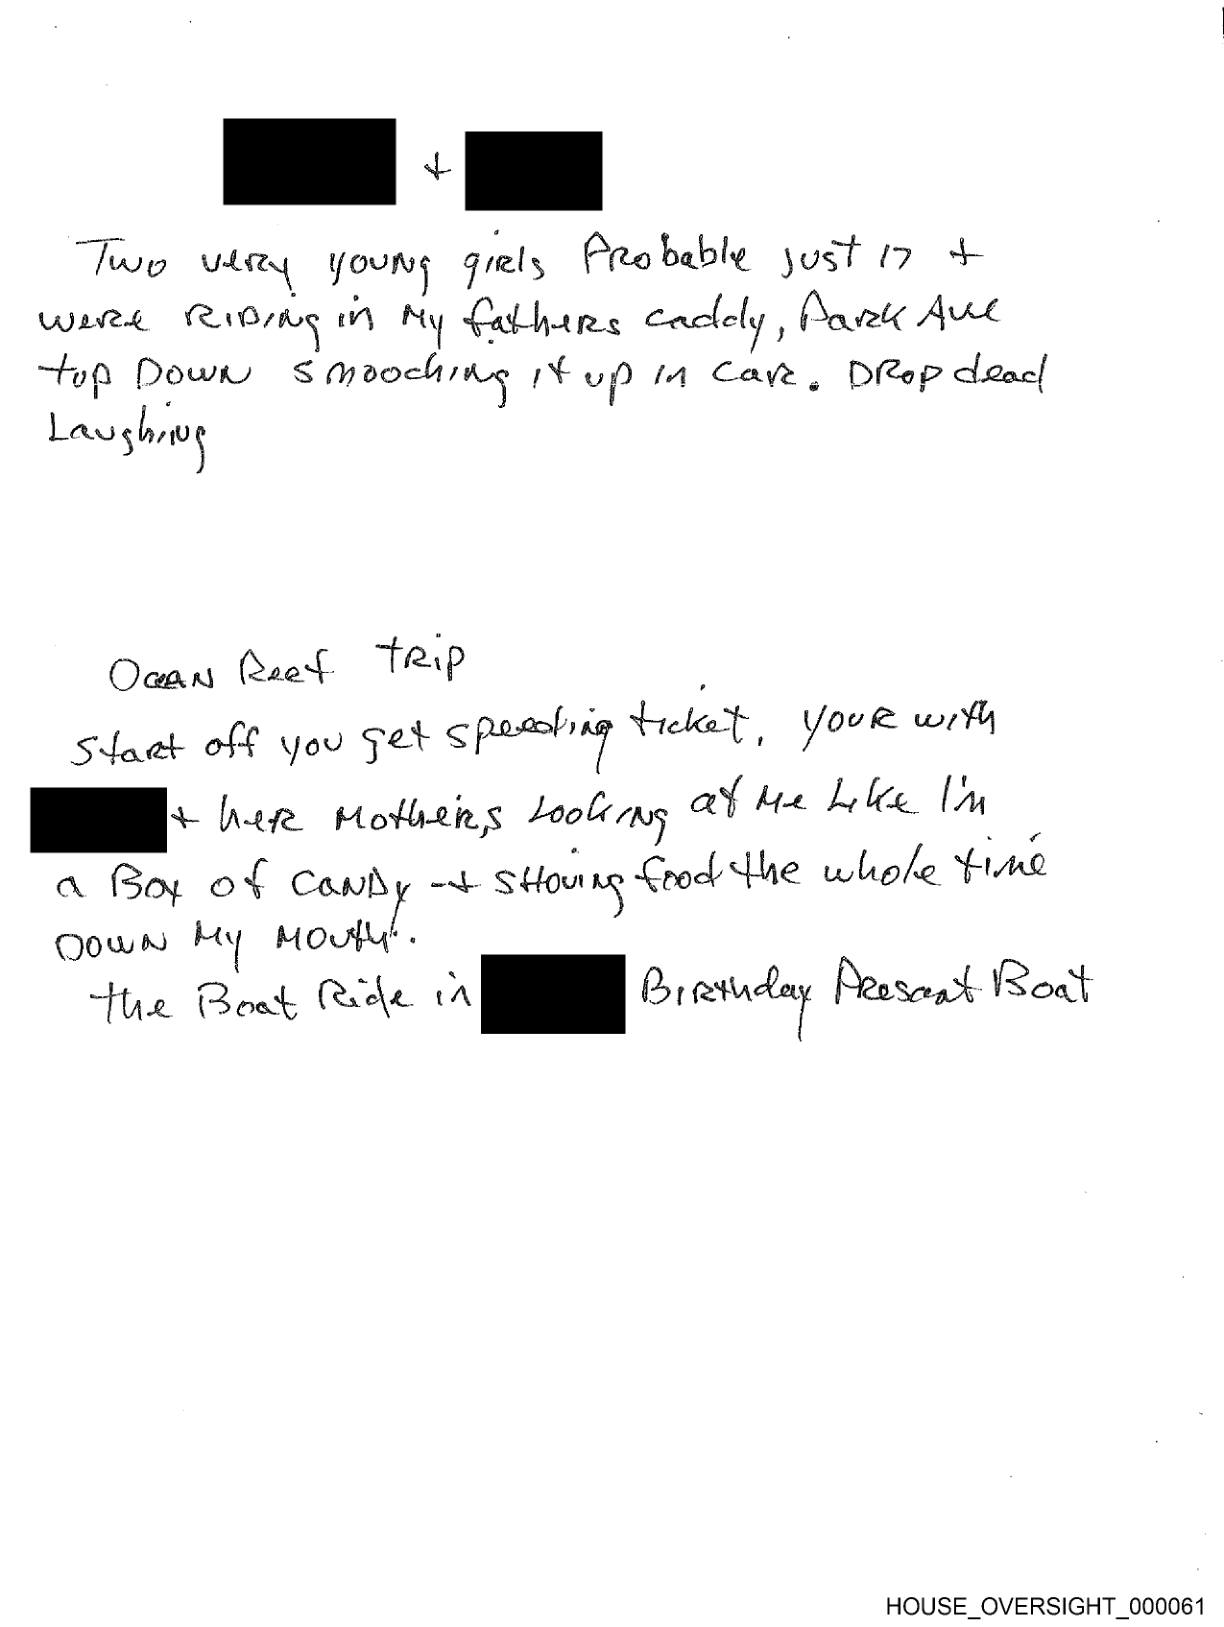 +
Two very young girls Probable just 17 +
were RIDING in My fathers caddy, Park Ave
top DOWN smooching it up in car. DROP dead
Laughing
Ocean Reef TRIP
Start off you get speeding ticket, your with
+ her Mothers Looking at Me Like I'm
a Box of CANDY + SHoving food the whole time
DOWN My MOUTH.
the Boat Ride in Birthday Present Boat
HOUSE_OVERSIGHT_000061